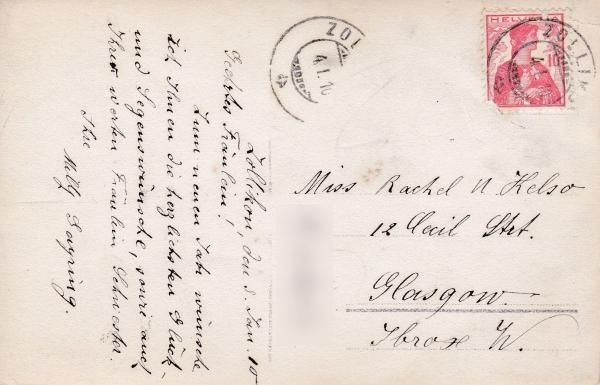 Zollikon, den 3. Jan. 10
Geehrtes Fräulein!
Zum neuen Jahr wünsche
ich Ihnen die herzlichsten Glück-
und Segenswünsche, sowie auch
Ihrer werten Fräulein Schwester.
Ihre
Milly
ZOL
4.I.10
HELVETIA
10
ZOLLIK
4
Miss Rachel N Kelso
12 Cecil Strt.
Glasgow
Ibrox W.